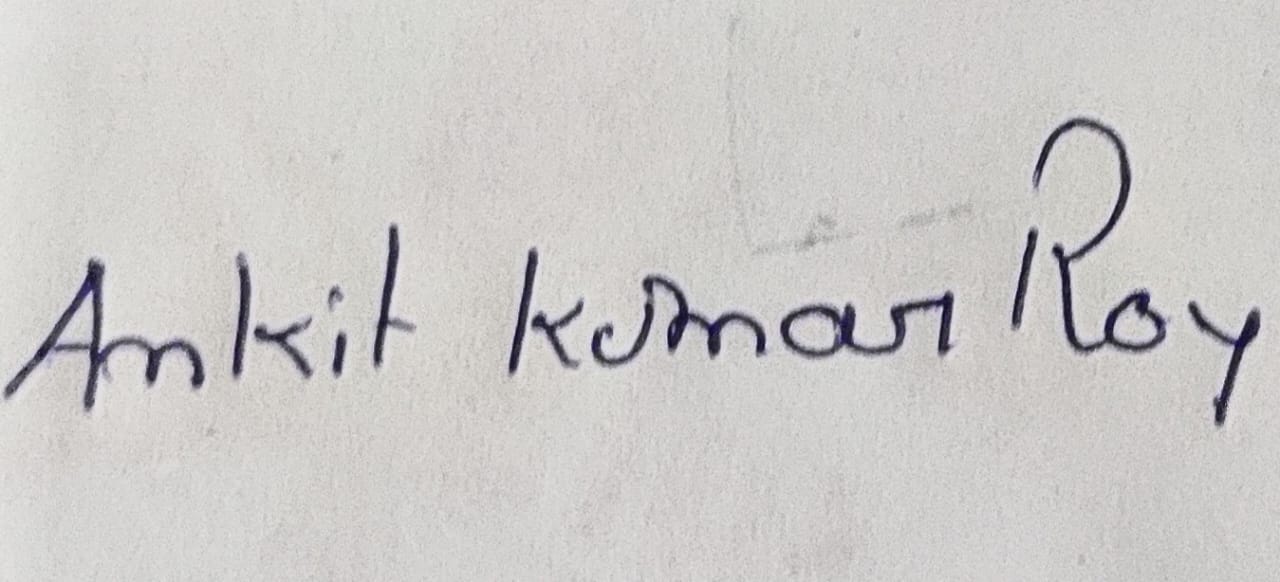 Ankit Kumar Roy